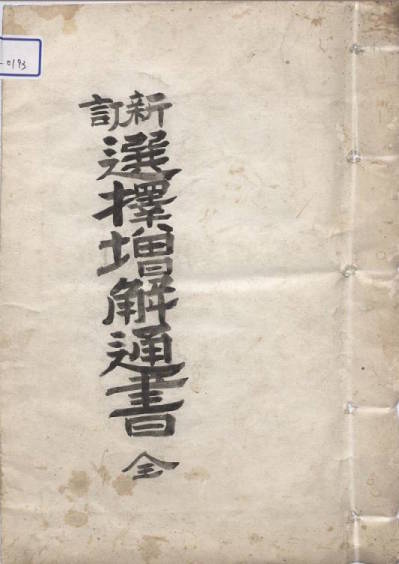 新訂
選擇增解通書 全
-0193